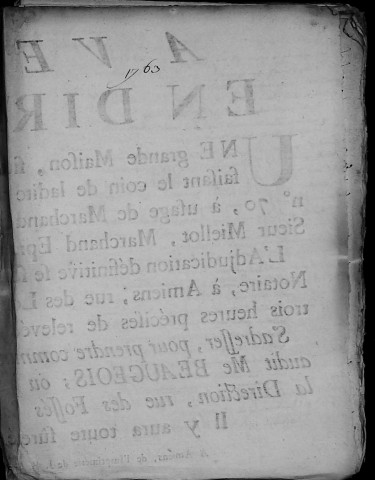 1763
A VE
EN DIR
UNE grande Maison, si
faisant le coin de ladite
n° 70, à usage de Marchand
Sieur Miellot, Marchand Epi
L'Adjudication définitive se f
Notaire, à Amiens; rue des
trois heures précises de relevé
S'adresser, pour prendre comm
audit Me BEAUGEOIS; ou
la Direction, rue des Fossés
Il y aura toute sûreté
A Amiens, de l'Imprimerie de